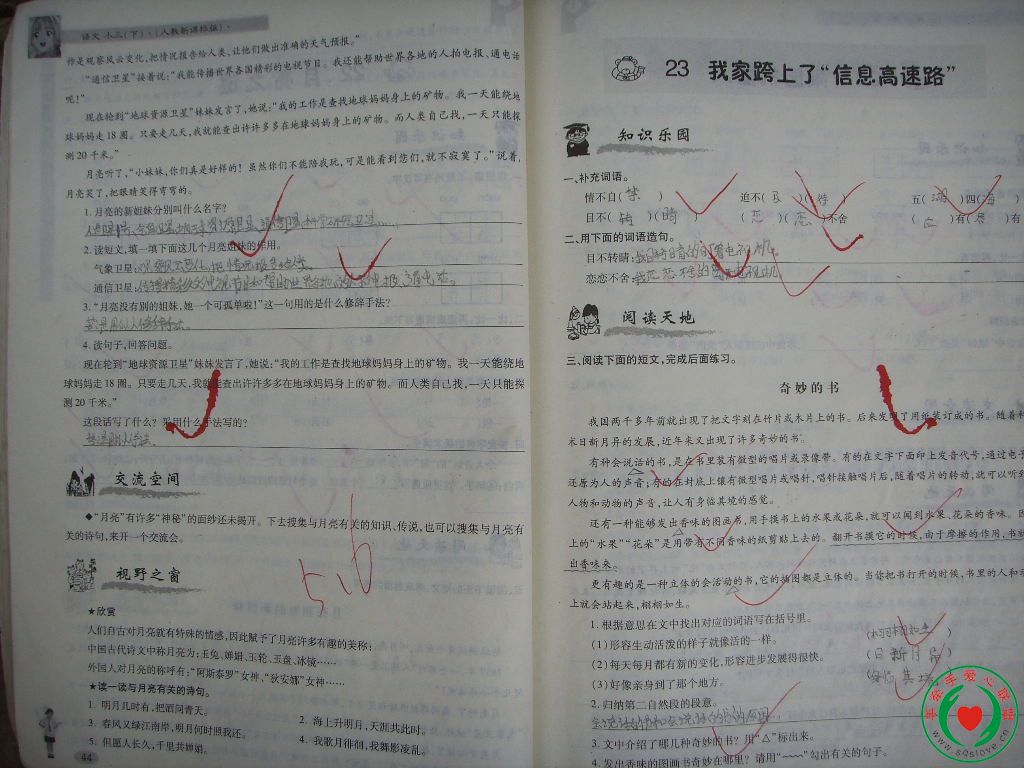 语文 小三(下)·(人教新课标版)·
作是观察风云变化,把情况报告给人类,让他们做出准确的天气预报。”
“通信卫星”接着说:“我能传播世界各国精彩的电视节目。我还能帮助世界各地的人拍电报、通电话
呢!”
现在轮到“地球资源卫星”妹妹发言了,她说:“我的工作是查找地球妈妈身上的矿物。我一天能绕地
球妈妈走18圈。只要走几天,我就能查出许许多多在地球妈妈身上的矿物。而人类自己找,一天只能探
测20千米。”
月亮听了,“小妹妹,你们真是好样的!虽然你们不能陪我玩,可是能看到您们,就不寂寞了。”说着,
月亮笑了,把眼睛笑得弯弯的。
1. 月亮的新姐妹分别叫什么名字?
2. 读短文,填一填下面这几个月亮姐妹的作用。
气象卫星:观察风云变化,把情况报告给人类
通信卫星:
3. “月亮没有别的姐妹,她一个可孤单啦!”这一句用的是什么修辞手法?
4. 读句子,回答问题。
现在轮到“地球资源卫星”妹妹发言了,她说:“我的工作是查找地球妈妈身上的矿物。我一天能绕地
球妈妈走18圈。只要走几天,我就能查出许许多多在地球妈妈身上的矿物。而人类自己找,一天只能探
测20千米。”
这段话写了什么?采用什么手法写的?
交流空间
◆“月亮”有许多“神秘”的面纱还未揭开。下去搜集与月亮有关的知识、传说,也可以搜集与月亮有
关的诗句,来开一个交流会。
5.16
视野之窗
★欣赏
人们自古对月亮就有特殊的情感,因此赋予了月亮许多有趣的美称:
中国古代诗文中称月亮为:玉兔、婵娟、玉轮、玉盘、冰镜……
外国人对月亮的称呼有:“阿斯泰罗”女神、“狄安娜”女神……
★读一读与月亮有关的诗句。
1. 明月几时有,把酒问青天。
2. 海上升明月,天涯共此时。
3. 春风又绿江南岸,明月何时照我还。
4. 我歌月徘徊,我舞影凌乱。
5. 但愿人长久,千里共婵娟。
44
23 我家跨上了“信息高速路”
知识乐园
一、补充词语。
情不自(禁) 迫不(及)(待) 五(湖)四(海)
目不(转)(睛) (恋)(恋)不舍 ( )有( )
二、用下面的词语造句。
目不转睛:
恋恋不舍:
阅读天地
三、阅读下面的短文,完成后面练习。
奇妙的书
我国两千多年前就出现了把文字刻在竹片或木片上的书。后来发明了用纸装订成的书。随着科
术日新月异的发展,近年来又出现了许多奇妙的书。
有种会说话的书,是在书里装有微型的唱片或录像带。有的在文字下面印上发音代号,通过电子
还原为人的声音;有的在封底上镶有微型唱片或唱针,唱针接触唱片后,随着唱片的转动,就可以听到
人物和动物的声音,让人有身临其境的感觉。
还有一种能够发出香味的图画书,用手摸书上的水果或花朵,就可以闻到水果、花朵的香味。因
上的“水果”“花朵”是用带有不同香味的纸剪贴上去的。翻开书摸它的时候,由于摩擦的作用,书就
出香味来。
更有趣的是一种立体的会活动的书,它的插图都是立体的。当你把书打开的时候,书里的人和动
上就会站起来,栩栩如生。
1. 根据意思在文中找出对应的词语写在括号里。
(1)形容生动活泼的样子就像活的一样。 (栩栩如生)
(2)每天每月都有新的变化,形容进步发展得很快。 (日新月异)
(3)好像亲身到了那个地方。 (身临其境)
2. 归纳第二自然段的段意。
3. 文中介绍了哪几种奇妙的书?用“△”标出来。
4. 发出香味的图画书奇妙在哪里?请用“~~~”勾出有关的句子。
手牵手爱心联盟
www.sqslove.cn